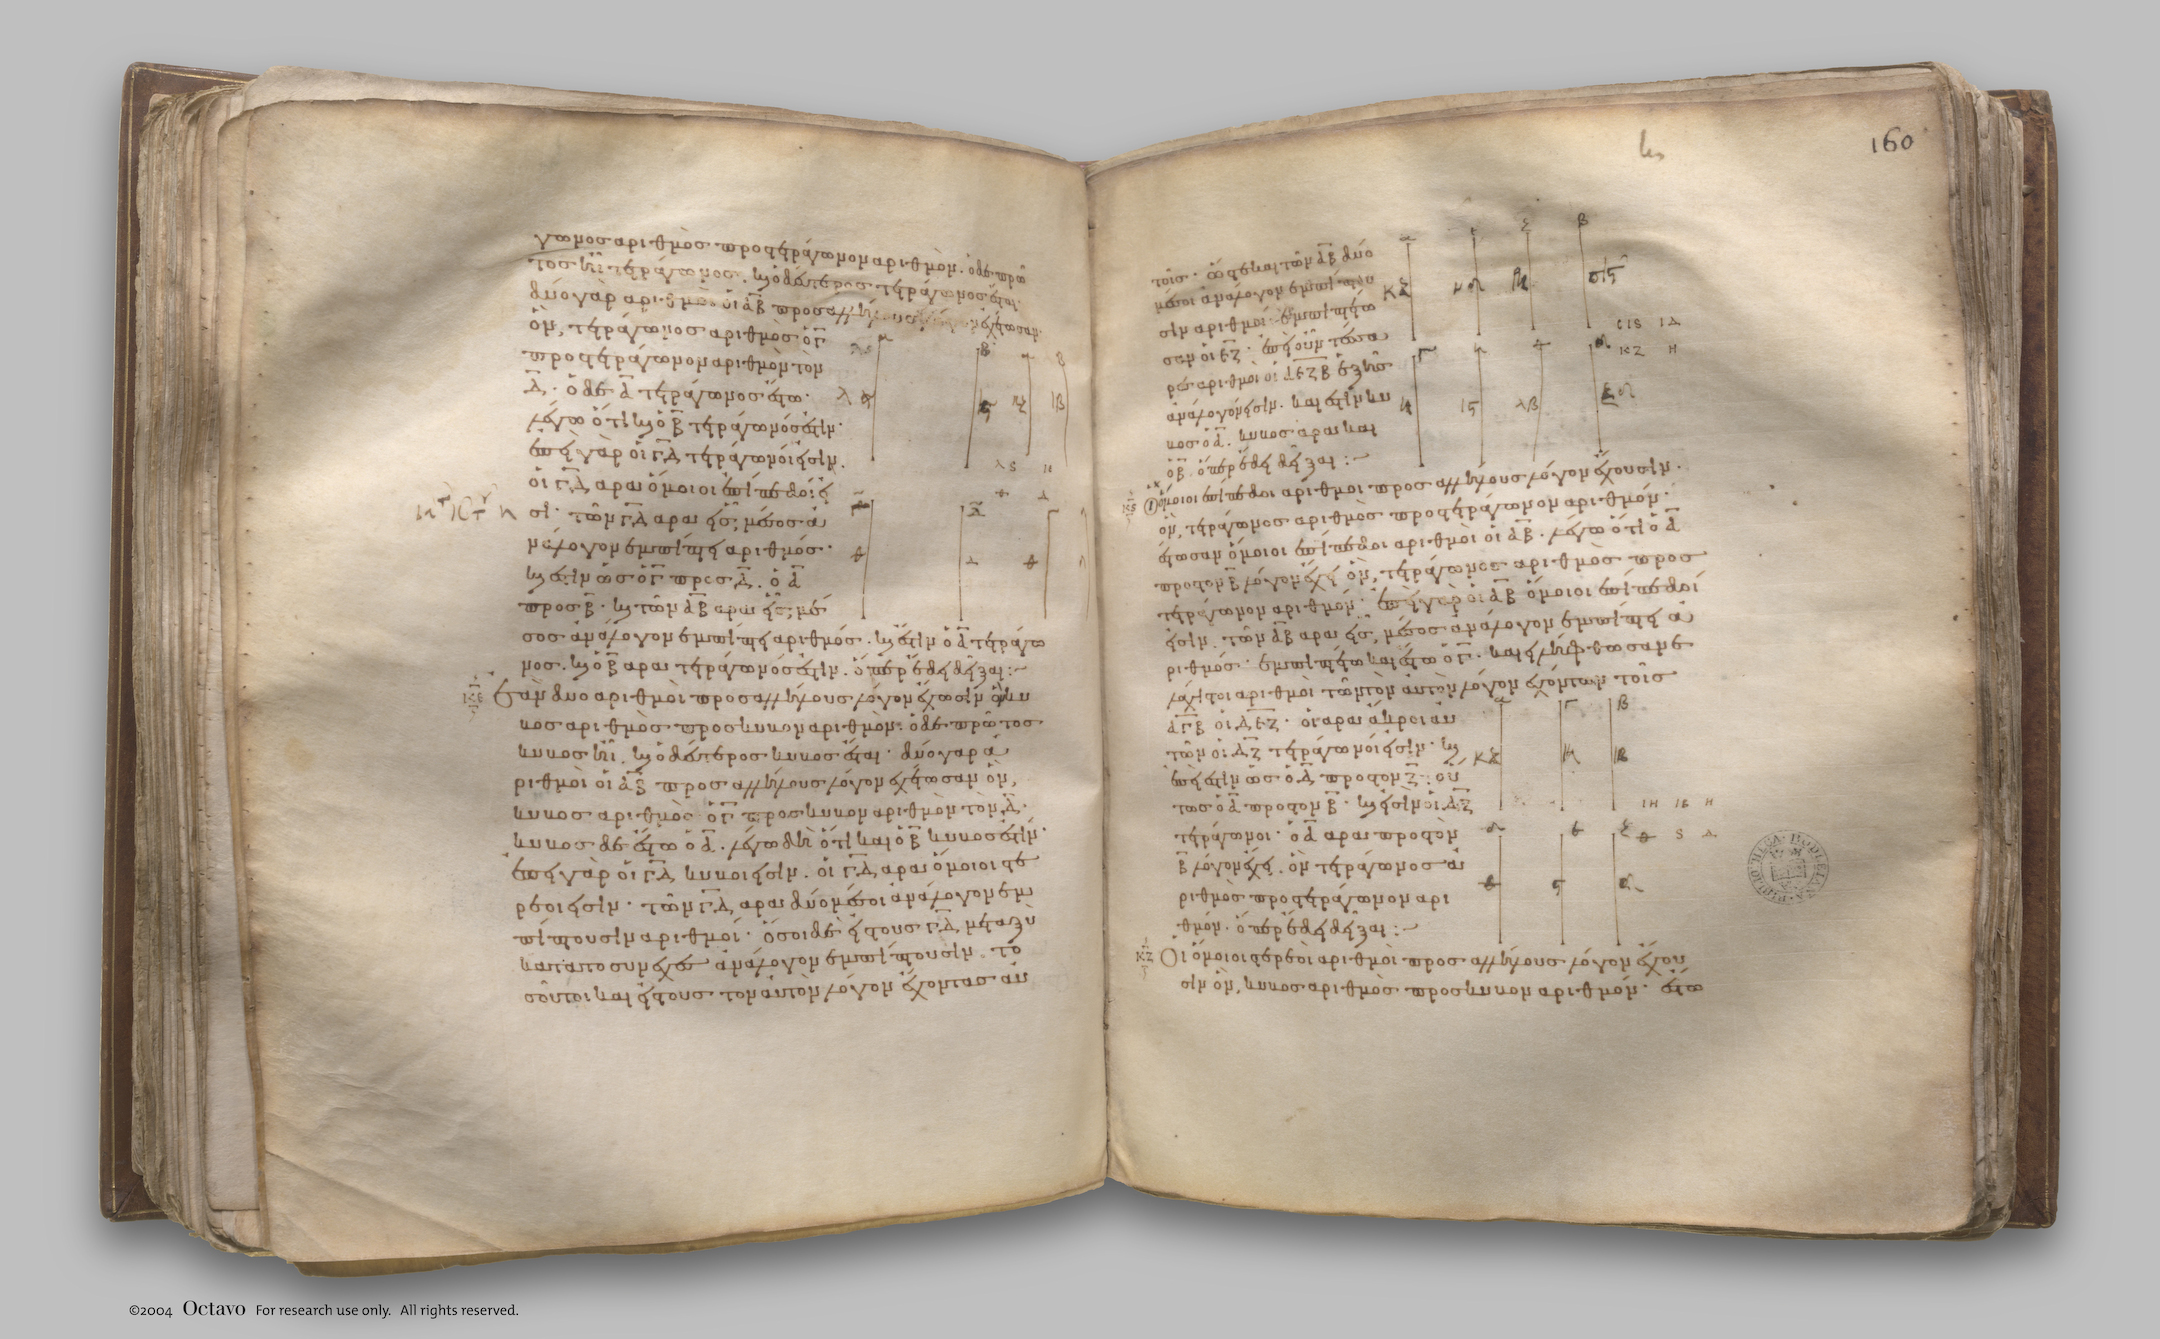 γωνος αριθμὸς προς τετράγωνον αριθμὸν· ὁ δὲ πρῶ
τος ἦι τετράγωνος· καὶ ὁ δεύτερος τετράγωνος ἔσται·
δύο γὰρ αριθμοὶ οἱ Α̅Β̅ προς αλλήλους λόγον ἐχέτωσαν·
ὃν, τετράγωνος αριθμὸς ὁ Γ̅
προς τετράγωνον αριθμὸν τὸν
Δ̅· ὁ δὲ Α̅ τετράγωνος ἔστω·
λέγω ὅτι καὶ ὁ Β̅ τετράγωνός ἐστιν·
ἐπεὶ γὰρ οἱ Γ̅Δ̅ τετράγωνοί εἰσιν.
οἱ Γ̅Δ̅ αρα ὅμοιοι ἐπίπεδοί εἰ
σι· τῶν Γ̅Δ̅ αρα εἷς, μέσος ἀ
νάλογον ἐμπίπτει αριθμός·
καὶ ἔστιν ὡς ὁ Γ̅ προς Δ̅. ὁ Α̅
προς Β̅· καὶ τῶν Α̅Β̅ αρα εἷς, μέ
σος ἀνάλογον ἐμπίπτει αριθμός. καὶ ἔστιν ὁ Α̅ τετράγω
νος. καὶ ὁ Β̅ αρα τετράγωνός ἐστιν. ὅπερ ἔδει δεῖξαι:~
ΚΕ Ἐὰν δυο αριθμὸι προς αλλήλους λόγον ἔχωσιν ὃν κυ
βος αριθμὸς προς κυβον αριθμὸν. ὁ δὲ πρῶτος
κυβος ἦι. καὶ ὁ δεύτερος κυβος ἔσται· δύο γαρ ἀ
ριθμοὶ οἱ Α̅Β̅ προς αλλήλους λόγον ἐχέτωσαν ὃν,
κυβος αριθμὸς ὁ Γ̅ προς κυβον αριθμὸν τὸν Δ̅·
κυβος δε ἔστω ὁ Α̅. λέγω δὴ ὅτι και ὁ Β̅ κυβος ἐστίν·
ἐπεὶ γὰρ οἱ Γ̅Δ̅ κυβοι εἰσίν. οἱ Γ̅Δ̅ αρα ὅμοιοι στε
ρεοι εἰσίν· τῶν Γ̅Δ̅ αρα δύο μέσοι ἀνάλογον ἐμ
πίπτουσιν αριθμοί· ὅσοι δὲ εἰς τους Γ̅Δ̅ μεταξὺ
κατα το συνεχὲς ἀνάλογον ἐμπίπτουσιν. το
σοῦτοι και εἰς τους τον αυτὸν λόγον ἔχοντας αυ
160
τοῖς· ὥστε και τῶν Α̅Β̅ δύο
μέσοι ἀνάλογον ἐμπίπτου
σιν αριθμοί· ἐμπιπτέτω
σαν οἱ Ε̅Ζ̅· ἐπεὶ οὖν τέσσα
ρες αριθμοὶ οἱ Α̅Ε̅Ζ̅Β̅ ἑξῆς
ἀνάλογόν εἰσιν. και ἐστιν κυ
βος ὁ Α̅. κυβος αρα και
ὁ Β̅. ὅπερ ἔδει δεῖξαι:~
ΚϚ Ὁι ὅμοιοι ἐπίπεδοι αριθμοι προς αλλήλους λόγον ἔχουσιν.
ὃν, τετράγωνος αριθμὸς προς τετράγωνον αριθμόν·
ἔστωσαν ὅμοιοι ἐπίπεδοι αριθμοὶ οἱ Α̅Β̅. λέγω ὅτι ὁ Α̅
προς τον Β̅ λόγον ἔχει ὃν, τετράγωνος αριθμὸς προς
τετράγωνον αριθμόν· ἐπεὶ γαρ οἱ Α̅Β̅ ὅμοιοι ἐπίπεδοί
εἰσιν. τῶν Α̅Β̅ αρα εἷς, μέσος ἀνάλογον ἐμπίπτει ἀ
ριθμός· ἐμπιπτέτω και ἔστω ὁ Γ̅. και εἰλήφθωσαν ἐ
λάχιστοι αριθμοὶ τῶν τὸν αυτὸν λόγον ἐχόντων τοῖς
Α̅Γ̅Β̅ οἱ Δ̅Ε̅Ζ̅· οἱ αρα ἄκροι αυ
τῶν οἱ Δ̅Ζ̅ τετράγωνοί εἰσιν· και
ἐπεί ἐστιν ὡς ὁ Δ̅ προς τον Ζ̅· οὕ
τως ὁ Α̅ προς τον Β̅· και εἰσὶν οἱ Δ̅Ζ̅
τετράγωνοι· ὁ Α̅ αρα προς τὸν
Β̅ λόγον ἔχει. ὃν τετράγωνος ἀ
ριθμὸς προς τετράγωνον αρι
θμόν. ὅπερ ἔδει δεῖξαι:~
ΚΖ Οἱ ὅμοιοι στερεοὶ αριθμοὶ προς αλλήλους λόγον ἔχου
σιν ὃν, κυβος αριθμὸς προς κυβον αριθμόν· ἔστω
©2004 Octavo For research use only. All rights reserved.